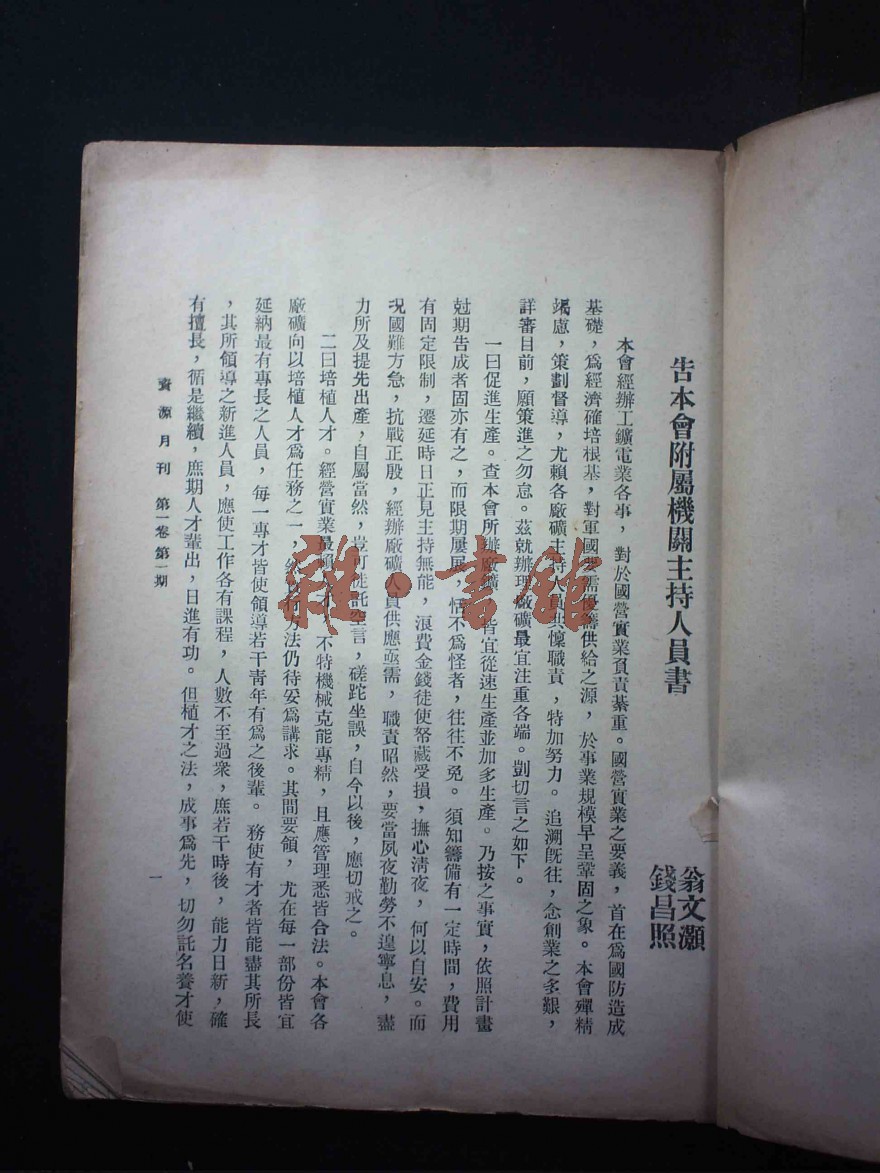 告本會附屬機關主持人員書
翁文灝
錢昌照
本會經辦工鑛電業各事，對於國營實業負責綦重。國營實業之要義，首在爲國防造成
基礎，爲經濟確培根基，對軍國要需優籌供給之源，於事業規模早呈鞏固之象。本會殫精
竭慮，策劃督導，尤賴各廠礦主持人員共懍職責，特加努力。追溯旣往，念創業之多艱，
詳審目前，願策進之勿怠。茲就辦理廠礦最宜注重各端。剴切言之如下。
一曰促進生產。查本會所辦廠鑛，皆宜從速生產並加多生產。乃按之事實，依照計畫
尅期告成者固亦有之，而限期屢展，恬不爲怪者，往往不免。須知籌備有一定時間，費用
有固定限制，遷延時日正見主持無能，浪費金錢徒使帑藏受損，撫心淸夜，何以自安。而
況國難方急，抗戰正殷，經辦廠礦人員供應亟需，職責昭然，要當夙夜勤勞不遑寧息，盡
力所及提先出產，自屬當然，豈可徒託空言，磋跎坐誤，自今以後，應切戒之。
二曰培植人才。經營實業最 不特機械克能專精，且應管理悉皆合法。本會各
廠礦向以培植人才爲任務之一，然 方法仍待妥爲講求。其間要領，尤在每一部份皆宜
延納最有專長之人員，每一專才皆使領導若干靑年有爲之後輩。務使有才者皆能盡其所長
，其所領導之新進人員，應使工作各有課程，人數不至過衆，庶若干時後，能力日新，確
有擅長，循是繼續，庶期人才輩出，日進有功。但植才之法，成事爲先，切勿託名養才使
資源月刊 第一卷第一期
一
雜·書館